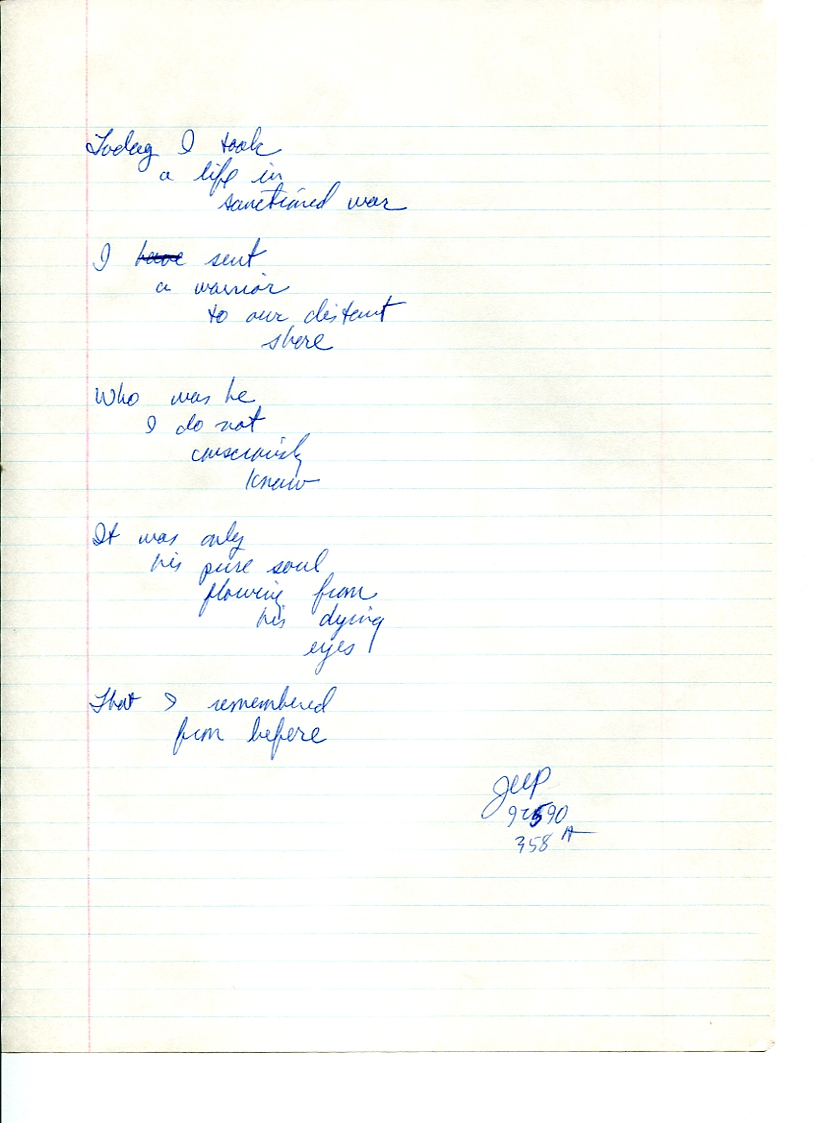 Today I took
a life in
sanctioned war
I have sent
a warrior
to our distant
shore
Who was he
I do not
consciously
know
It was only
his pure soul
flowing from
his dying
eyes
That I remembered
from before
92590
358 A